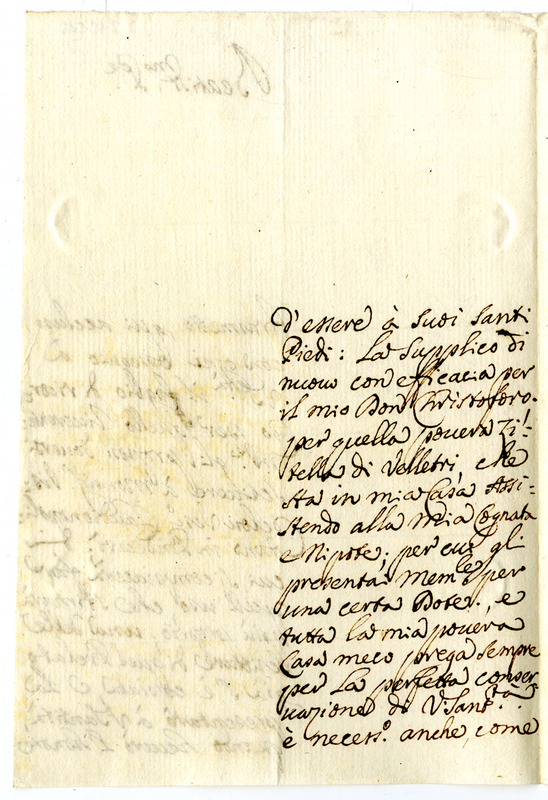 d'essere à suoi Santi
Piedi: La supplico di
nuovo con efficacia per
il mio Don Christoforo.
per quella povera Zi=
tella di Velletri, che
sta in mia Casa Assi=
stendo alla mia Cognata
e Nipote; per cui gli
presentai Mem:le per
una certa Dote., e
tutta la mia povera
Casa meco prega sempre
per La perfetta conser
vazione di V. Sant.tà
è necess.o anche, come